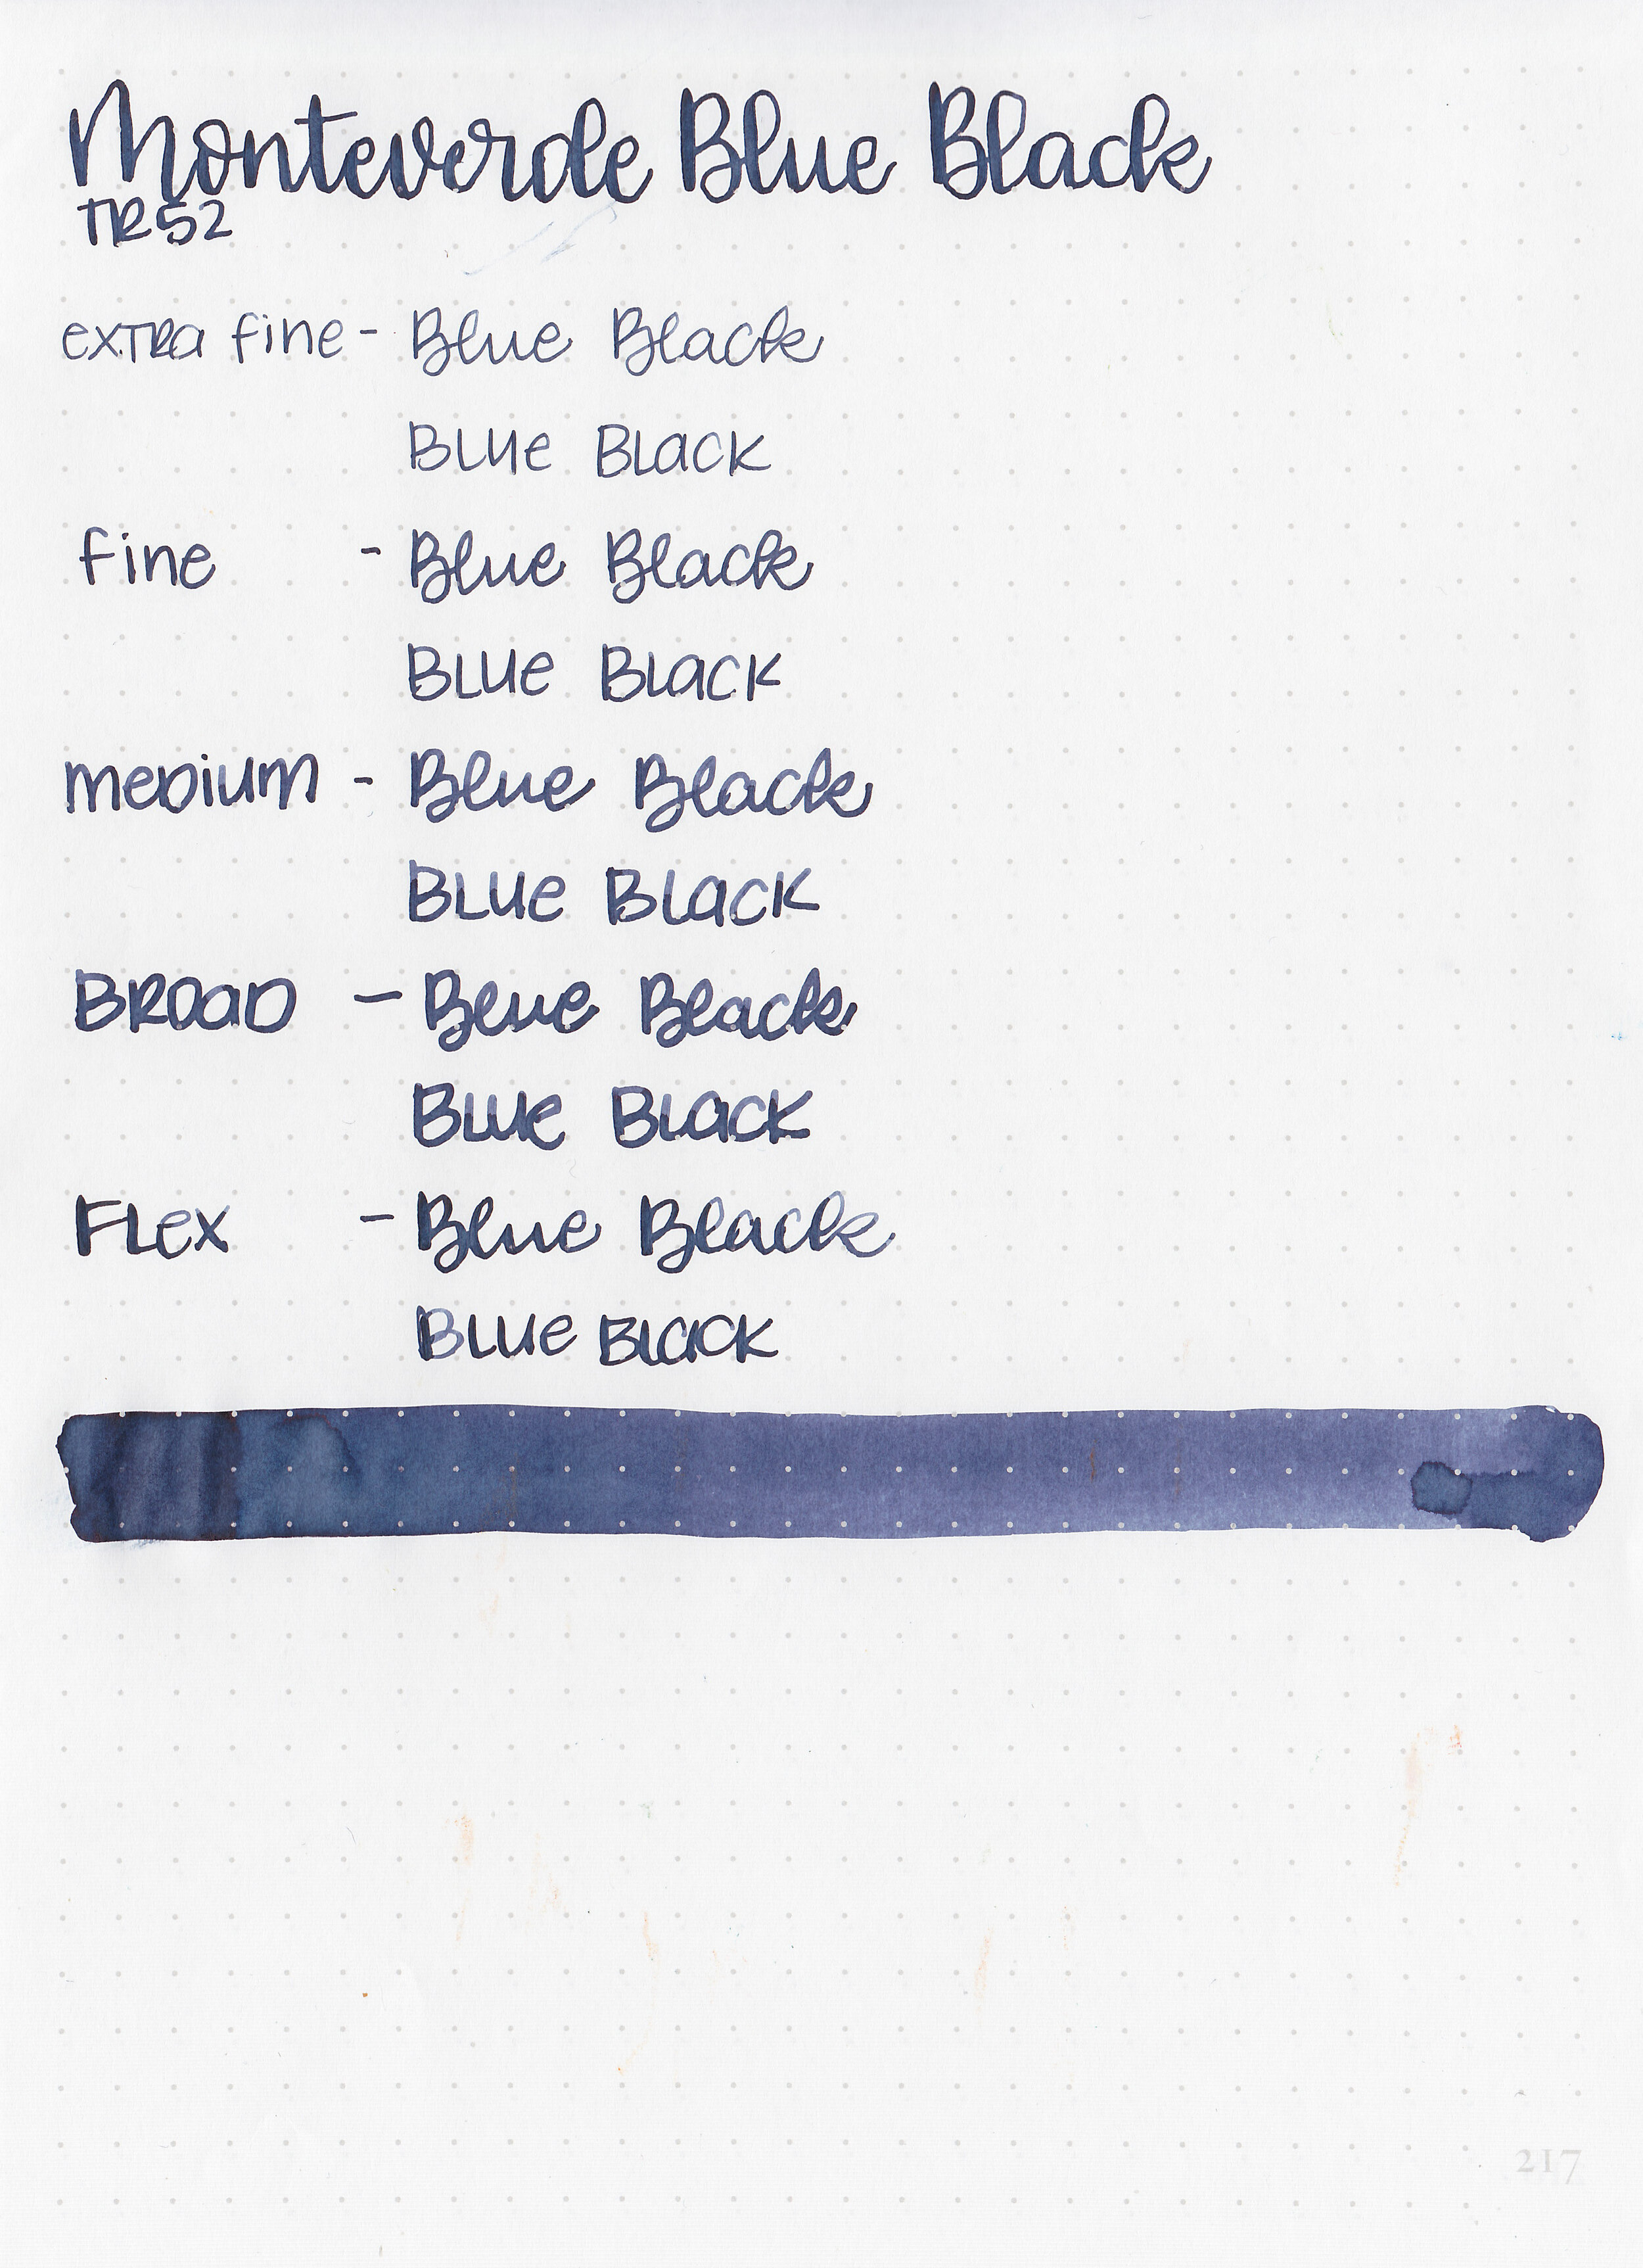 Monteverde Blue Black
TR52
extra fine - Blue Black
BLUe BLacK
fine - Blue Black
BLUe BLacK
meDium - Blue Black
BLUe BLacK
BRoaD - Blue Black
BLUe BLacK
FLex - Blue Black
BLUe BLacK
217